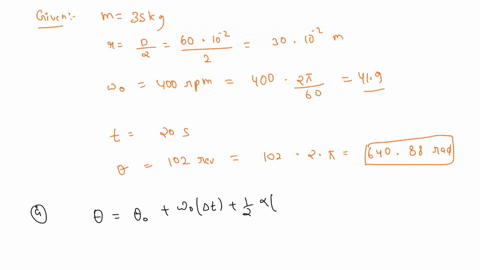 Given:- m = 35kg
r = D/2 = 60 · 10⁻²/2 = 30 · 10⁻² m
ω₀ = 400 rpm = 400 · 2π/60 = 41.9
t = 20 s
θ = 102 rev = 102 · 2 · π = 640.88 rad
a) θ = θ₀ + ω₀(Δt) + 1/2 α(